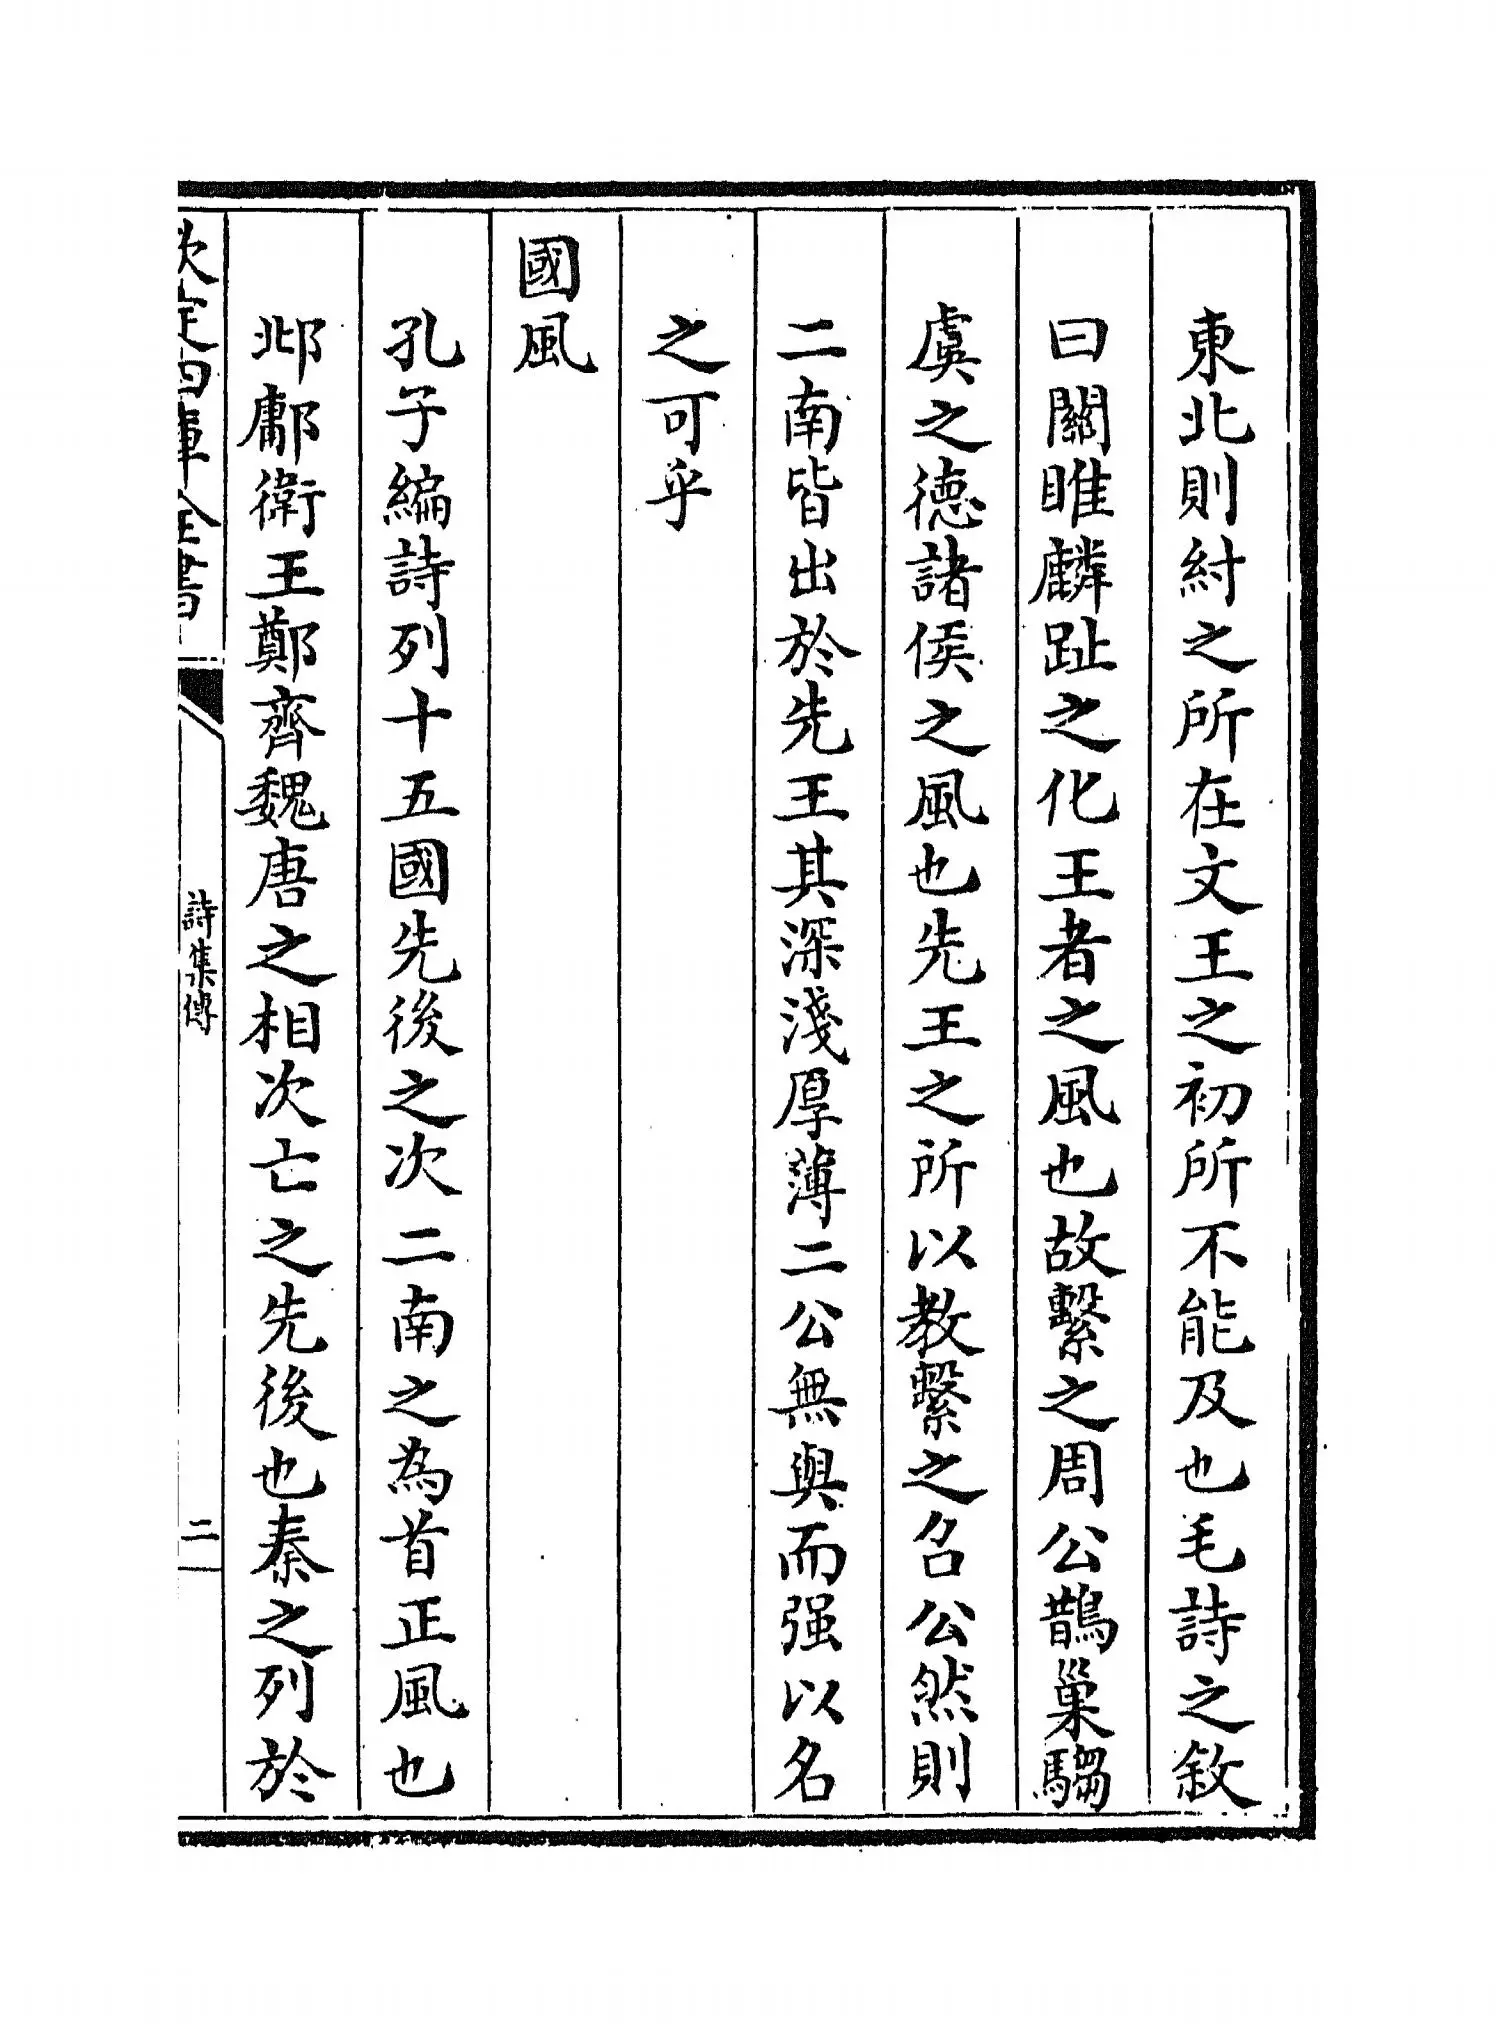 東北則紂之所在文王之初所不能及也毛詩之敘
曰關睢麟趾之化王者之風也故繫之周公鵲巢騶
虞之德諸侯之風也先王之所以教繫之召公然則
二南皆出於先王其深淺厚薄二公無與而强以名
之可乎
國風
孔子編詩列十五國先後之次二南之為首正風也
邶鄘衛王鄭齊魏唐之相次亡之先後也秦之列於
欽定四庫全書
詩集傳
二